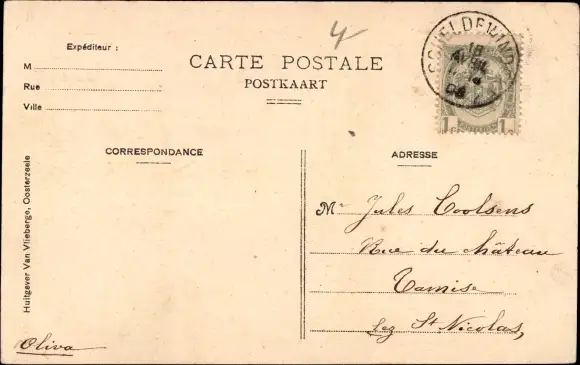 Expéditeur :
M
Rue
Ville
4
CARTE POSTALE
POSTKAART
SCHELDEWINDEKE
18
AVRIL
1 1
CORRESPONDANCE
ADRESSE
Mr Jules Coolsens
Rue du château
Tamise
Lez St Nicolas,
Huitgever Van Vlieberge, Oosterzeele
Oliva